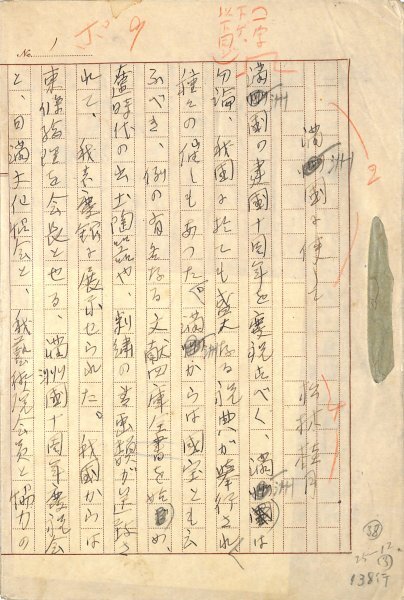 No. 1
ポ9
二字下ゲ
満洲国に使して
松林桂月
満洲国の建国十周年を慶祝すべく、満洲国は
勿論、我国に於ても盛大なる祝典が挙行され、
種々の催しもあつた。満洲国からは国宝とも云
ふべき、例の有名なる文献四庫全書を始め、
遼時代の出土陶器や、刺繍の書画類が送致さ
れて、我表慶館に展示せられた。我国からは
東條総理を会長とせる、満洲国十周年慶祝会
と、日満文化協会と、我藝術院会員と協力の
38
25-12
(3)
138行